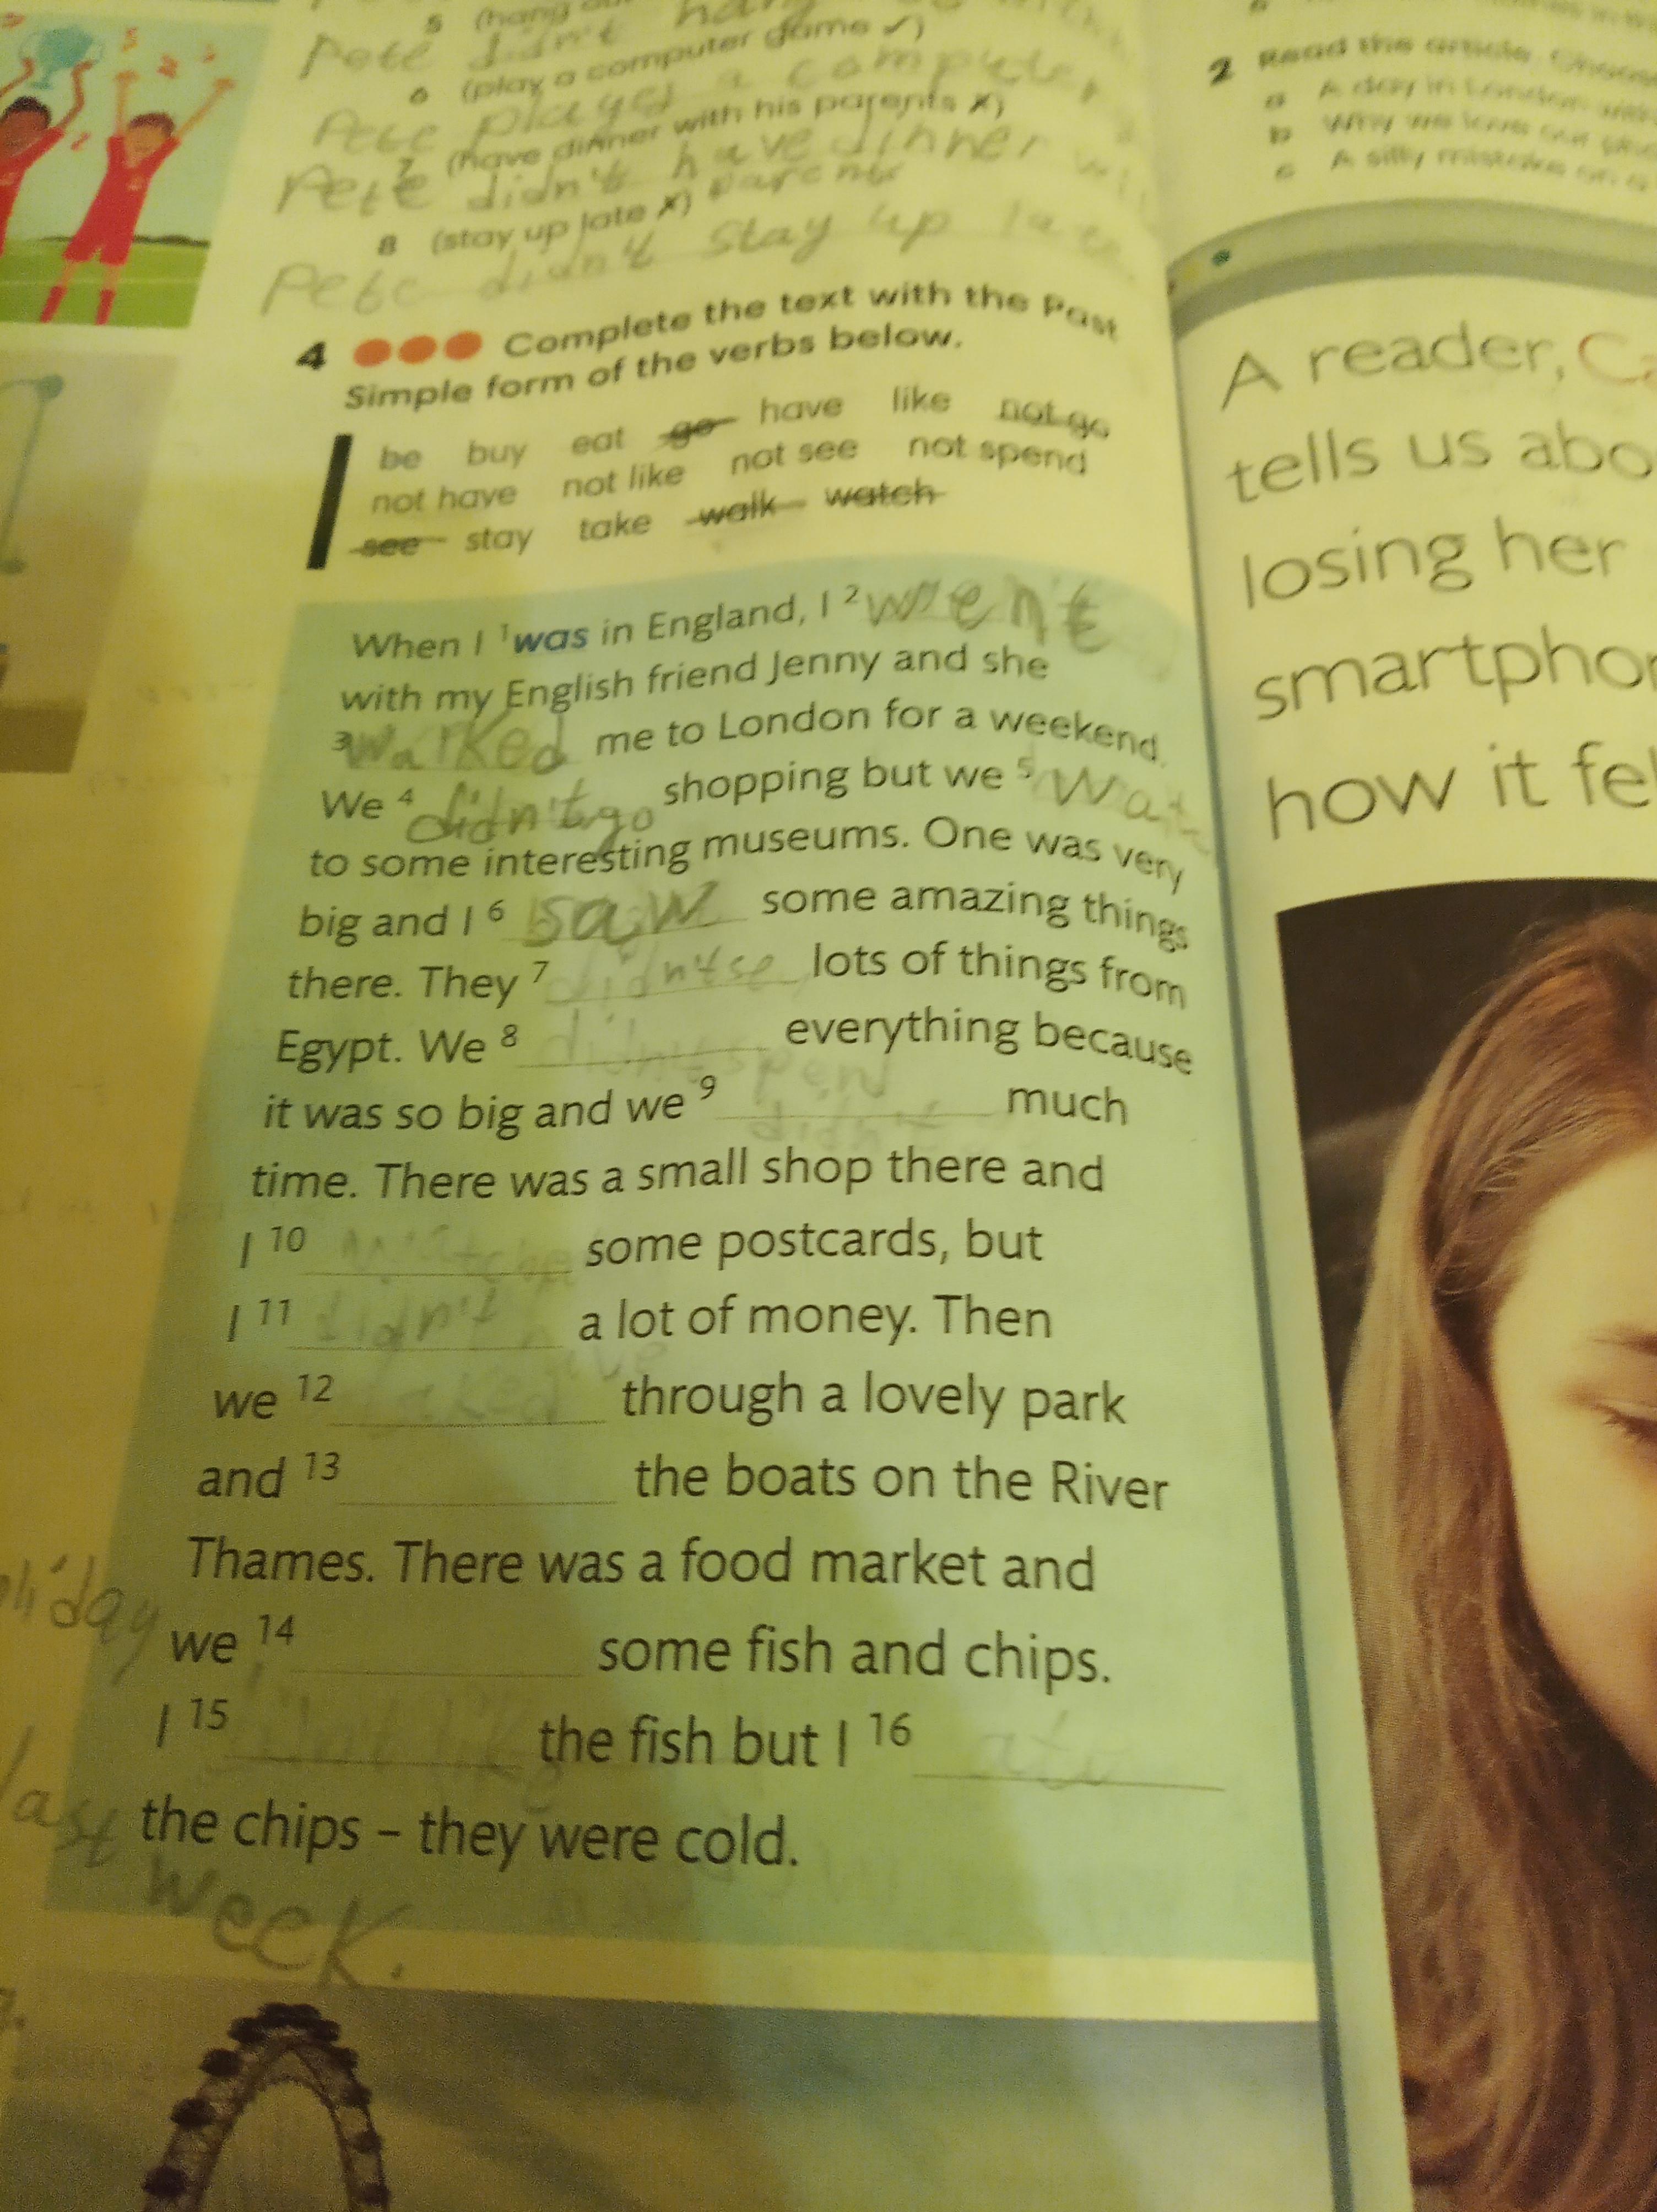 5 (hang
Pete didn't hang
6 (play a computer game ✓)
Pete played a computer
7 (have dinner with his parents ✗)
Pete didn't have dinner
parents
8 (stay up late ✗)
Pete didn't stay up late
4 Complete the text with the Past
Simple form of the verbs below.
be buy eat go have like not go
not have not like not see not spend
see stay take walk watch
When I 1 was in England, I 2 went
with my English friend Jenny and she
3 walked me to London for a weekend.
We 4 didn't go shopping but we 5
to some interesting museums. One was very
big and I 6 saw some amazing things
there. They 7 didn't se lots of things from
Egypt. We 8 everything because
it was so big and we 9 didn't much
time. There was a small shop there and
I 10 some postcards, but
I 11 didn't a lot of money. Then
we 12 through a lovely park
and 13 the boats on the River
Thames. There was a food market and
we 14 some fish and chips.
I 15 the fish but I 16
the chips – they were cold.
last
week.
2 Read the article. Choose
a A day in London
b Why we love our
c A silly mistake on a
A reader,
tells us
losing her
how it